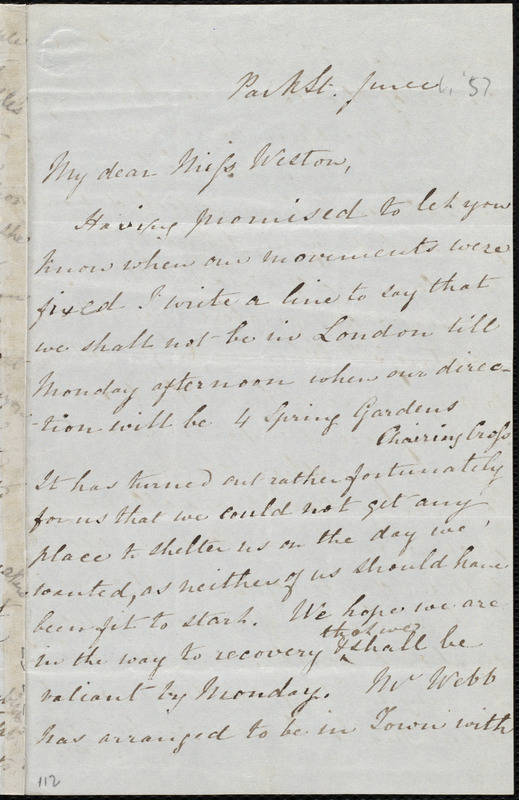 Park St. June 1, '57
My dear Miss Weston,
Having promised to let you
know when our movements were
fixed I write a line to say that
we shall not be in London till
Monday afternoon when our direc-
-tion will be 4 Spring Gardens
Charing Cross
It has turned out rather fortunately
for us that we could not get any
place to shelter us on the day we
wanted, as neither of us should have
been fit to start. We hope we are
in the way to recovery & that we shall be
valiant by Monday. Mr Webb
has arranged to be in Town with
112